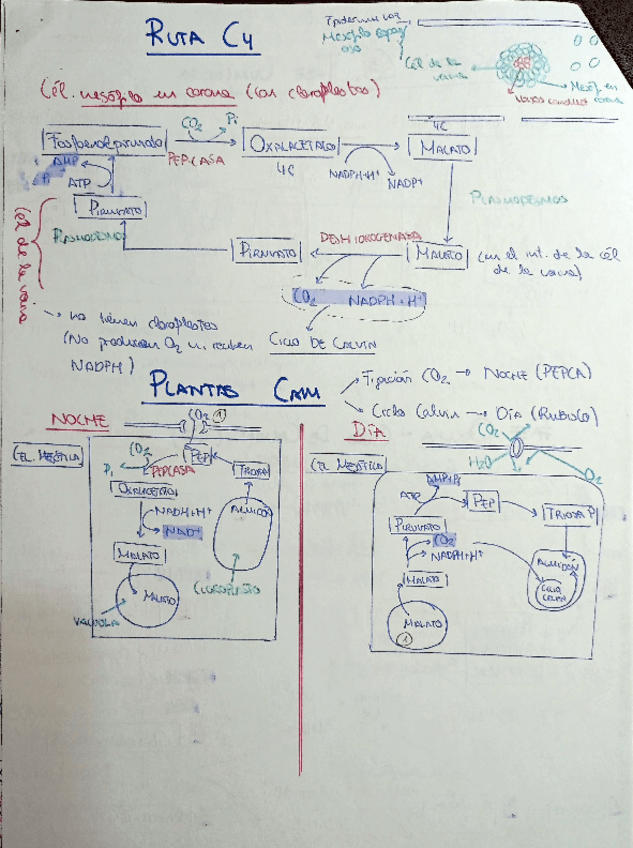 RUTA C4
Cél de la vaina
Mesóf. en corona
Vasos conduct
(Cél. mesófilo en corona (con cloroplastos)
CO2 Pi
Fosfoenolpiruvato PEPCASA OXALACETATO MALATO
4C 4C
NADPH+H+ NADP+
AMP
Pi ATP
PIRUVATO
PLASMODESMOS
PLASMODESMOS
Cél de la vaina
PIRUVATO DESHIDROGENASA MALATO (en el int. de la cél de la vaina)
CO2 NADPH+H+
CICLO DE CALVIN
no tienen cloroplastos
(No producen O2 ni
NADPH)
PLANTAS CAM
Fijación CO2 → NOCHE (PEPCA)
Ciclo Calvin → DÍA (RUBISCO)
NOCHE
CO2 1
CEL. MESÓFILA
CO2 PEP
Pi PEPCASA TRIOSA
OXALACETATO
NADH+H+
NAD+
ALMIDÓN
MALATO
MALATO
VACUOLA
CLOROPLASTO
DÍA
CO2
H2O O2
CEL MESÓFILA
AMP+Pi
ATP PEP TRIOSA P
PIRUVATO
CO2
NADPH+H+
ALMIDÓN
CICLO CALVIN
MALATO
MALATO
1